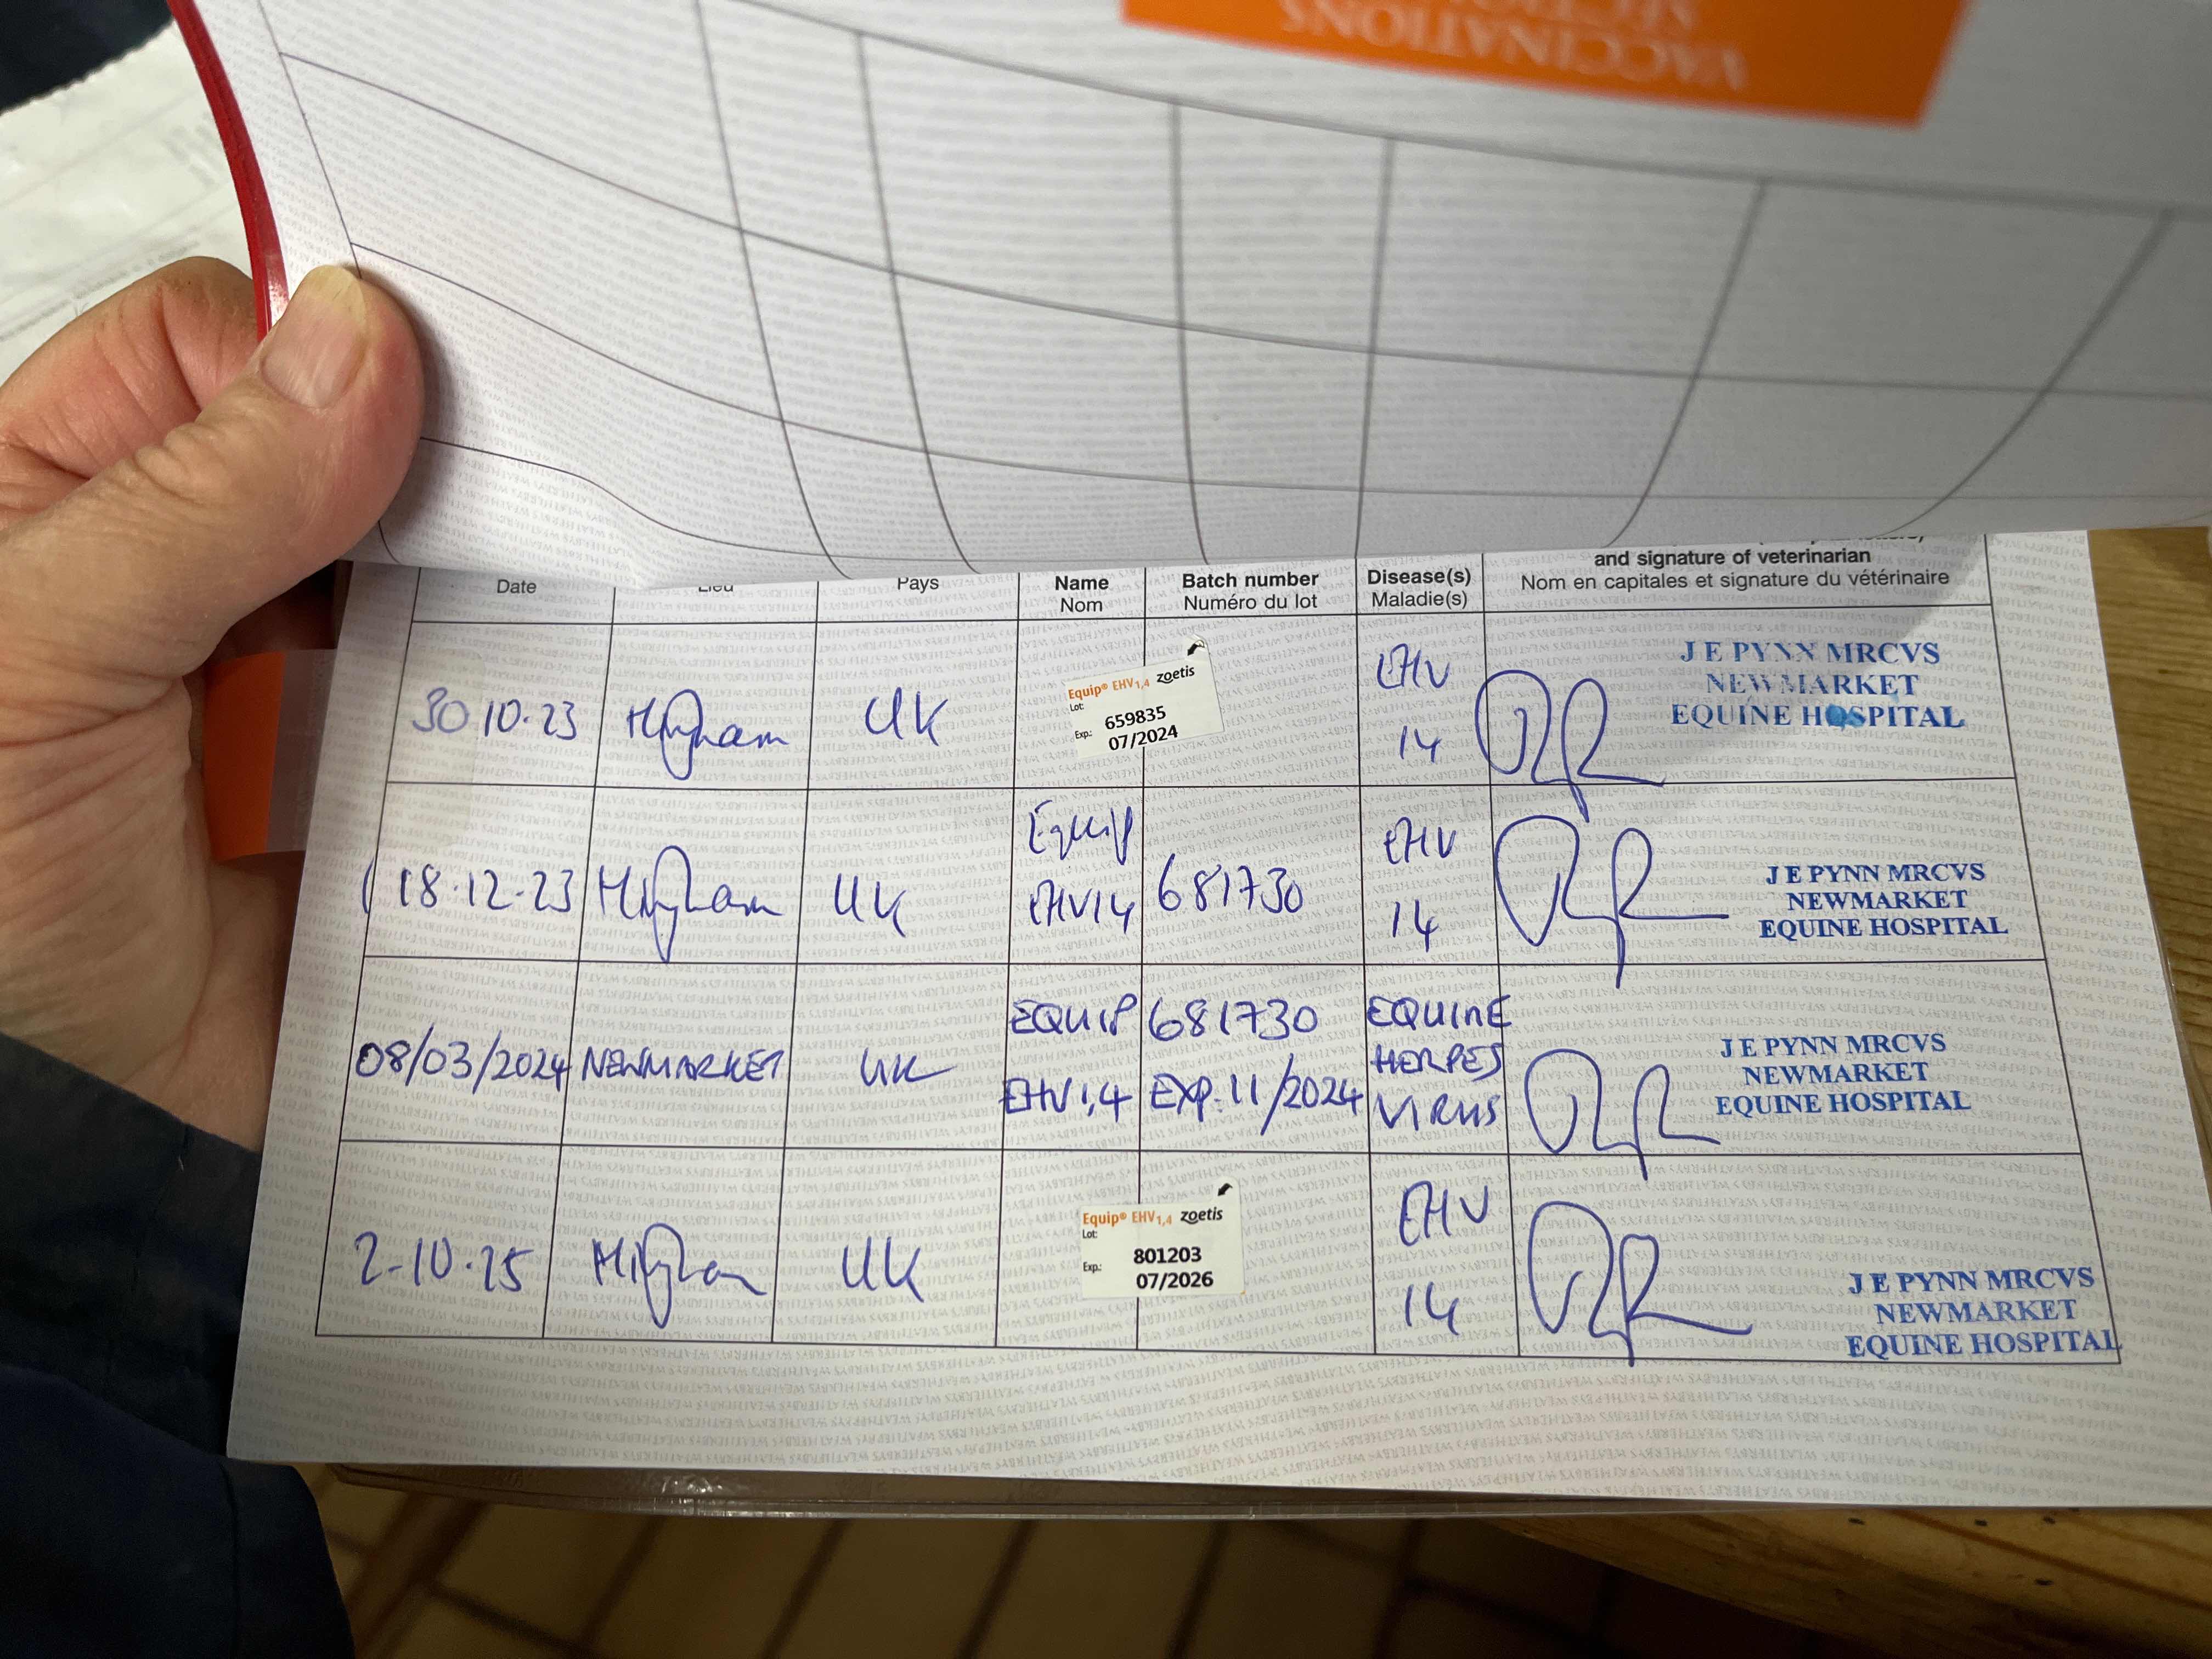 VACCINATIONS
Date
Lieu
Pays
Name
Nom
Batch number
Numéro du lot
Disease(s)
Maladie(s)
and signature of veterinarian
Nom en capitales et signature du vétérinaire
30 10.23
UK
Equip® EHV1,4 zoetis
Lot:
659835
Exp.:
07/2024
EHV
14
J E PYNN MRCVS
NEWMARKET
EQUINE HOSPITAL
18.12.23
UK
Equip
EHV14
681730
EHV
14
J E PYNN MRCVS
NEWMARKET
EQUINE HOSPITAL
08/03/2024
NEWMARKET
UK
EQUIP
EHV 1,4
681730
EXP: 11/2024
EQUINE
HERPES
VIRUS
J E PYNN MRCVS
NEWMARKET
EQUINE HOSPITAL
2-10.25
UK
Equip® EHV1,4 zoetis
Lot:
801203
Exp.:
07/2026
EHV
14
J E PYNN MRCVS
NEWMARKET
EQUINE HOSPITAL